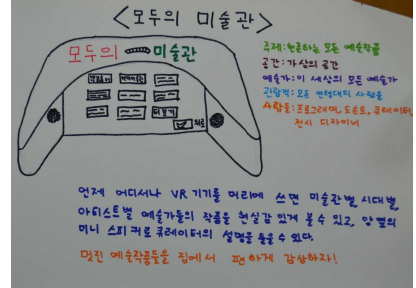 <모두의 미술관>
모두의 미술관
주제: 현존하는 모든 예술작품
공간: 가상의 공간
예술가: 이 세상의 모든 예술가
관람객: 모든 연령대의 사람들
사람들: 프로그래머, 도슨트, 큐레이터,
전시 디자이너
더보기
언제 어디서나 VR 기기를 머리에 쓰면 미술관별, 시대별,
아티스트별 예술가들의 작품을 현실감 있게 볼 수 있고, 양 옆의
미니 스피커로 큐레이터의 설명을 들을 수 있다.
멋진 예술작품들을 집에서 편하게 감상하자!